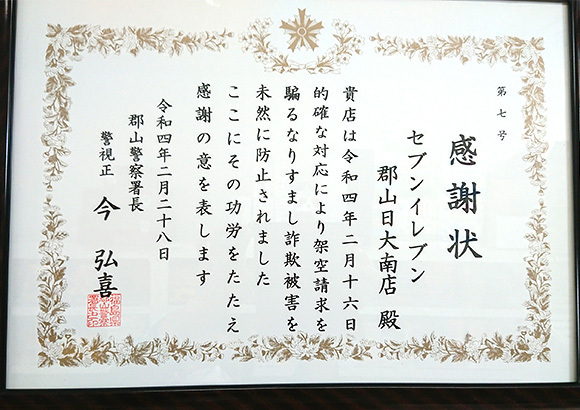 第七号
感謝状
セブンイレブン
郡山日大南店 殿
貴店は令和四年二月十六日
的確な対応により架空請求を
騙るなりすまし詐欺被害を
未然に防止されました
ここにその功労をたたえ
感謝の意を表します
令和四年二月二十八日
郡山警察署長
警視正 今 弘喜